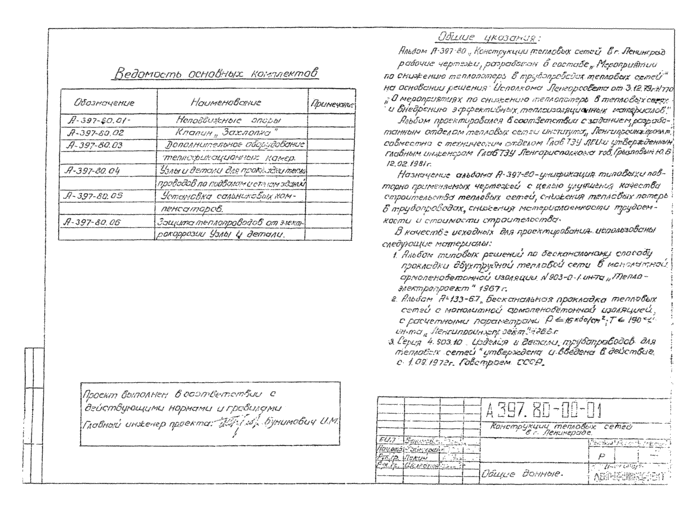 Ведомость основных комплектов
Обозначение Наименование Примечание
А-397-80.01- Неподвижные опоры
А-397-80.02 Клапан „Захлопка"
А-397-80.03 Дополнительное оборудование
теплофикационных камер.
А-397-80.04 Узлы и детали для прокладки тепло
проводов по подвалам и стенам зданий
А-397-80.05 Установка сальниковых ком-
пенсаторов.
А-397-80.06 Защита теплопроводов от элект-
рокоррозии Узлы и детали.
Проект выполнен в соответствии с
действующими нормами и правилами
Главный инженер проекта: Бунимович И.М.
Общие указания:
Альбом А-397-80 „Конструкции тепловых сетей в г. Ленинград
рабочие чертежи, разработан в составе „Мероприятий
по снижению теплопотерь в трубопроводах тепловых сетей"
на основании решения Исполкома Ленгорсовета от 3.12.79г. N770
„О мероприятиях по снижению теплопотерь в тепловых сетях
и внедрению эффективных теплоизоляционных материалов".
Альбом проектировался в соответствии с заданием, разрабо-
танным отделом тепловых сетей института „Ленгипроинжпроект"
совместно с техническим отделом Глав ТЭУ ЛГИ и утвержденным
главным инженером Глав ТЭУ Ленгорисполкома тов.
12.02.1981г.
Назначение альбома А-397-80-унификация типовых и пов-
торно применяемых чертежей с целью улучшения качества
строительства тепловых сетей, снижения тепловых потерь
в трубопроводах, снижения материалоемкости трудоем-
кости и стоимости строительства.
В качестве исходных для проектирования использованы
следующие материалы:
1. Альбом типовых решений по бесканальному способу
прокладки двухтрубной тепловой сети в монолитной
армопенобетонной изоляции N 903-0-1 ин-та „Тепло-
электропроект" 1967г.
2. Альбом А-133-67 „Бесканальная прокладка тепловых
сетей с монолитной армопенобетонной изоляцией,
с расчетными параметрами Р ≤ 16 кгс/см²; Т ≤ 150°С
ин-та „Ленгипроинжпроект"
3. Серия 4.903.10. Изделия и детали трубопроводов для
тепловых сетей" утверждена и введена в действие
с 1.09.1972г. Госстроем СССР.
А397.80-00-01
Конструкции тепловых сетей
в г. Ленинграде.
Р
Общие данные.